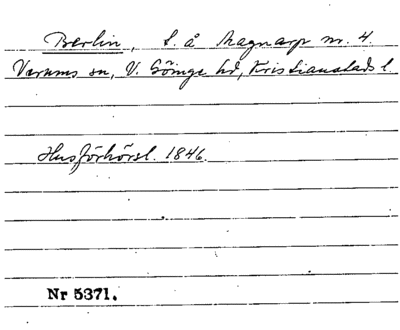 Berlin, t. å Magnarp nr. 4
Verums sn, V. Göinge hd, Kristianstads l.
Husförhörsl. 1846.
Nr 5371.